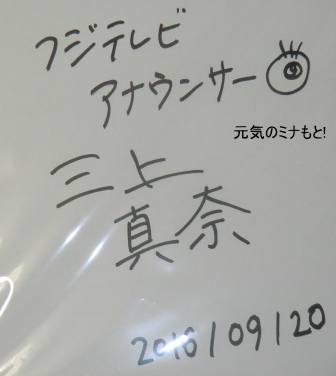 フジテレビ
アナウンサー
元気のミナもと!
三上
真奈
2016/09/20